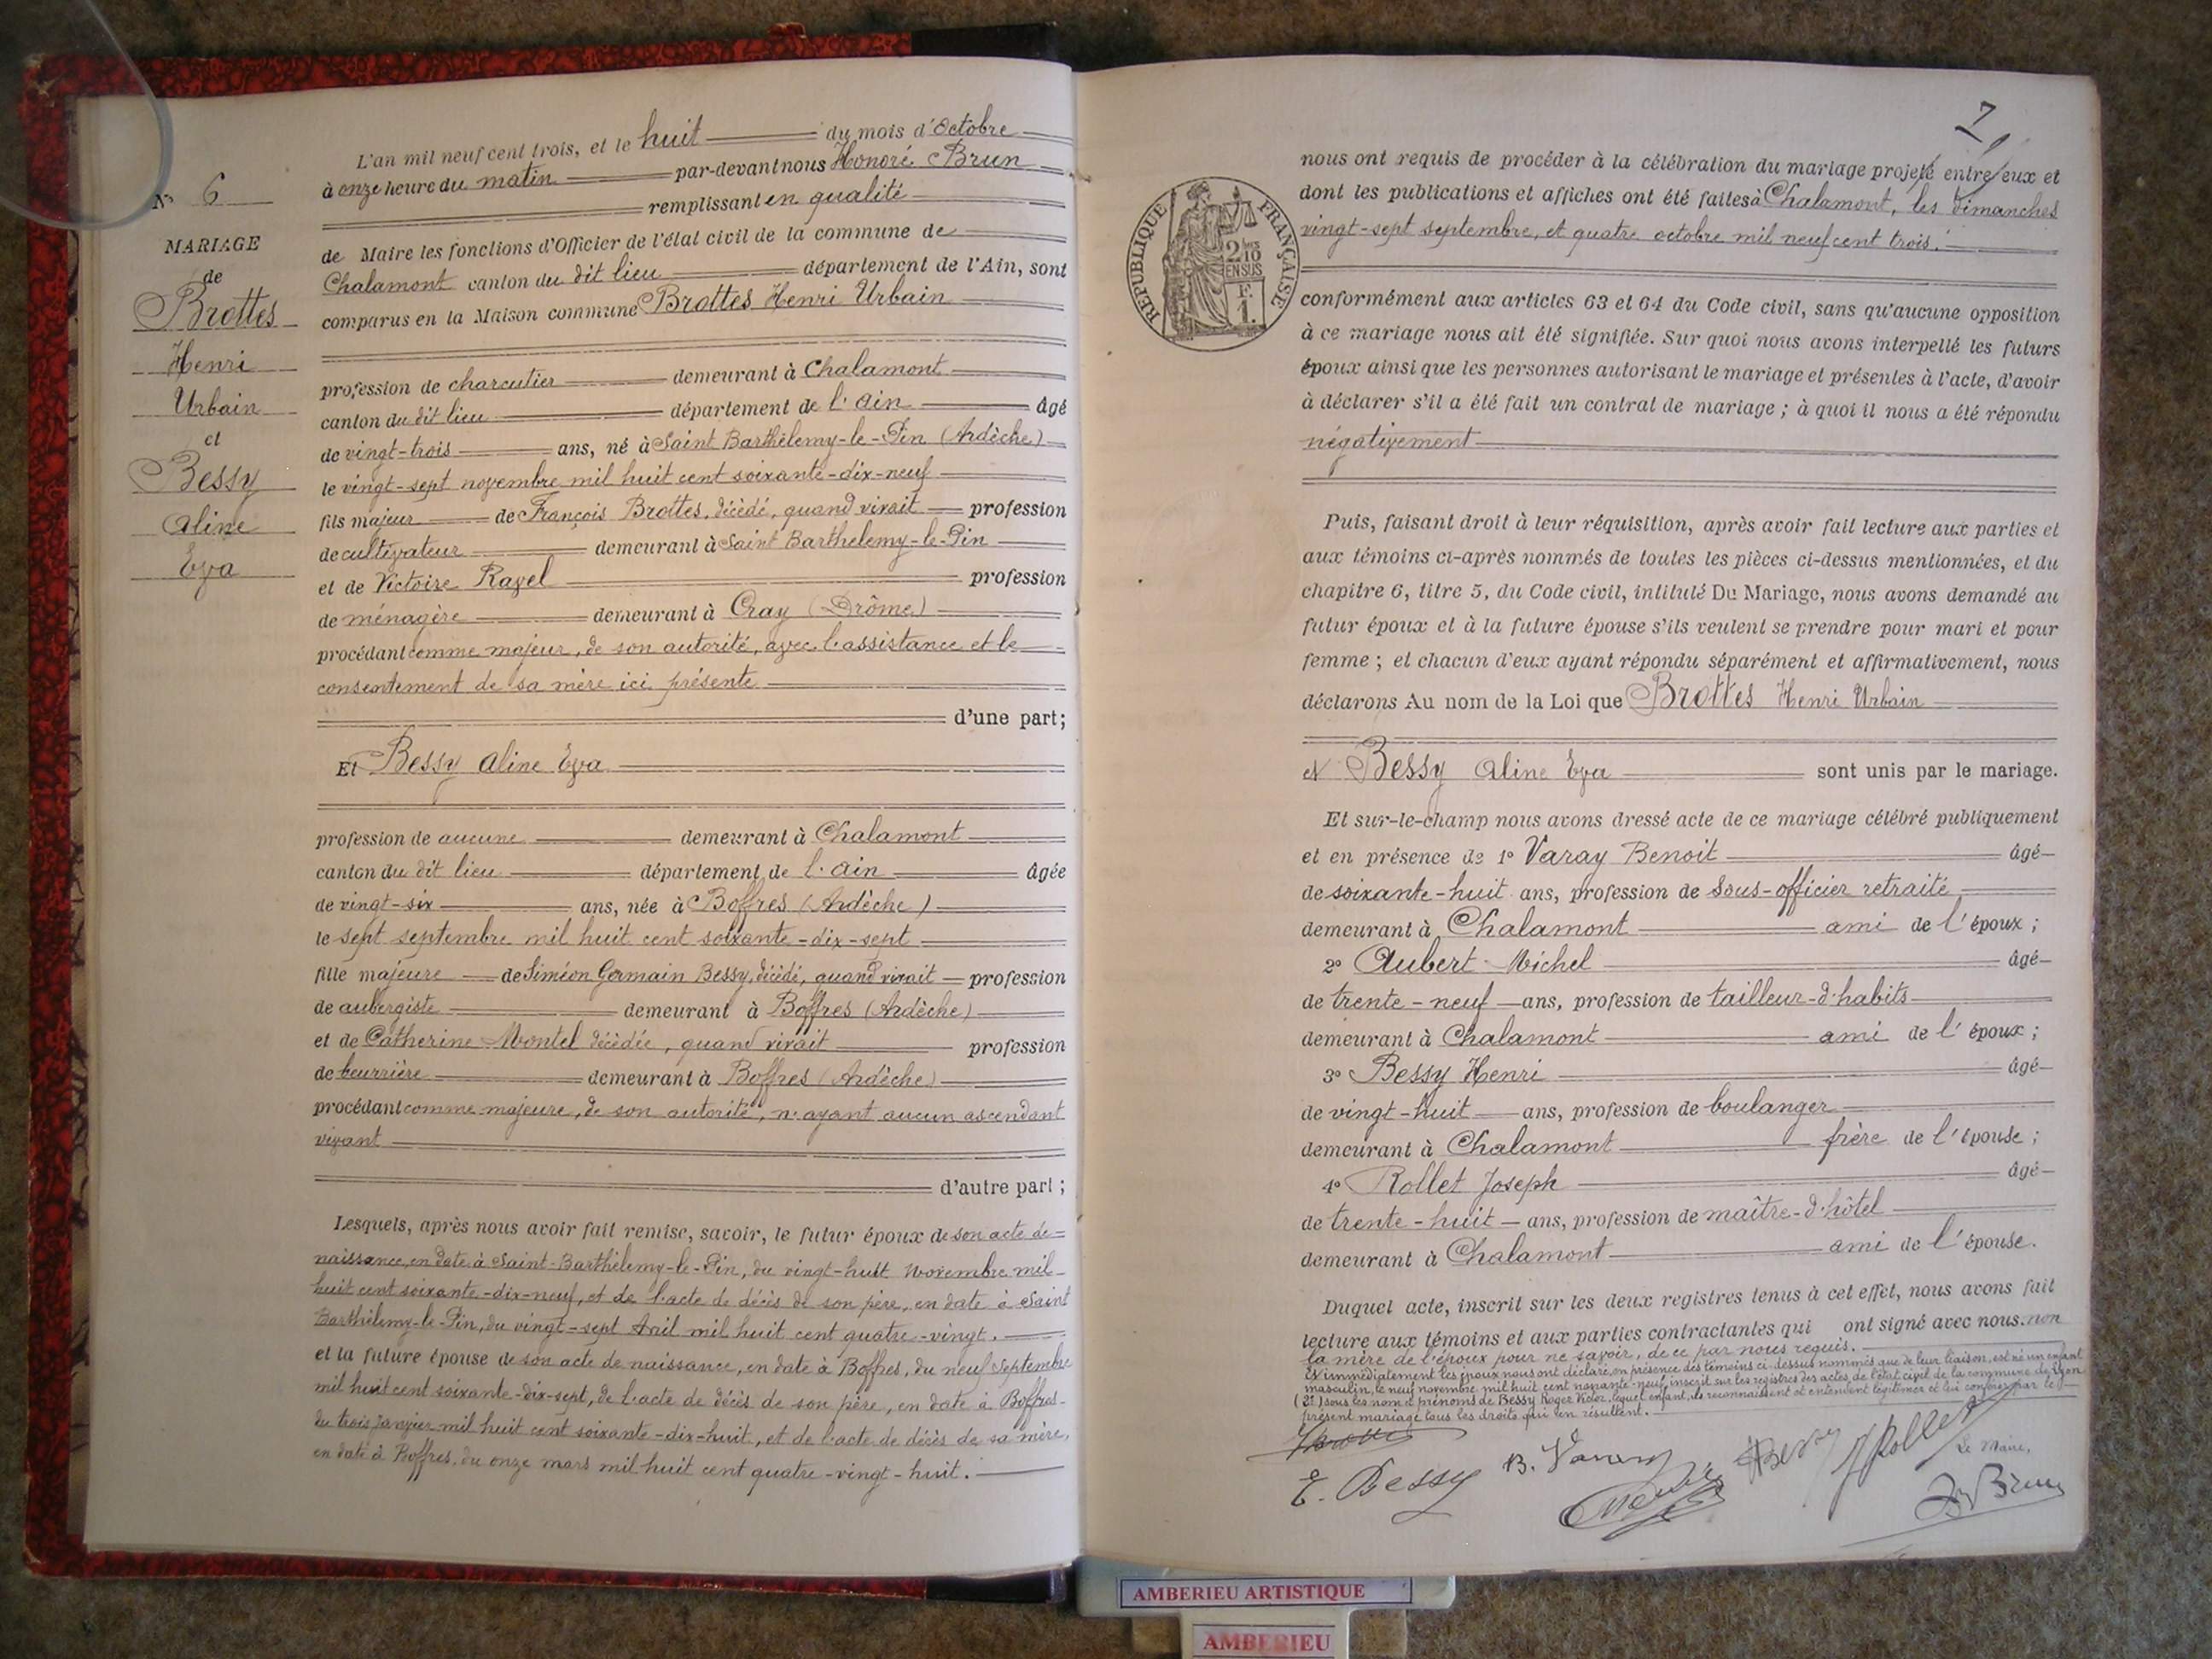 L'an mil neuf cent trois, et le huit du mois d'Octobre
à onze heure du matin par-devant nous Honoré Brun
remplissant en qualité
de Maire les fonctions d'Officier de l'état civil de la commune de
Chalamont canton du dit lieu département de l'Ain, sont
comparus en la Maison commune Brottes Henri Urbain
profession de charcutier demeurant à Chalamont
canton du dit lieu département de l'Ain âgé
de vingt-trois ans, né à Saint Barthélemy-le-Pin (Ardèche)
le vingt-sept novembre mil huit cent soixante-dix-neuf
fils majeur de François Brottes, décédé, quand vivait profession
de cultivateur demeurant à Saint Barthelemy-le-Pin
et de Victoire Ravel profession
de ménagère demeurant à (Drôme)
procédant comme majeur, de son autorité, avec l'assistance et le
consentement de sa mère ici présente
d'une part;
Et Bessy Aline Eva
profession de aucune demeurant à Chalamont
canton du dit lieu département de l'Ain âgée
de vingt-six ans, née à Boffres (Ardèche)
le sept septembre mil huit cent soixante-dix-sept
fille majeure de Siméon Germain Bessy, décédé, quand vivait profession
de aubergiste demeurant à Boffres (Ardèche)
et de Catherine Montel décédée, quand vivait profession
de beurrière demeurant à Boffres (Ardèche)
procédant comme majeure, de son autorité, n'ayant aucun ascendant
vivant
d'autre part;
Lesquels, après nous avoir fait remise, savoir, le futur époux de son acte de
naissance, en date à Saint-Barthélemy-le-Pin, du vingt-huit Novembre mil
huit cent soixante-dix-neuf, et de l'acte de décès de son père, en date à Saint
Barthélemy-le-Pin, du vingt-sept Avril mil huit cent quatre-vingt.
et la future épouse de son acte de naissance, en date à Boffres, du neuf Septembre
mil huit cent soixante-dix-sept, de l'acte de décès de son père, en date à Boffres
du trois Janvier mil huit cent soixante-dix-huit, et de l'acte de décès de sa mère,
en date à Boffres, du onze mars mil huit cent quatre-vingt-huit.
N° 6
MARIAGE
de
Brottes
Henri
Urbain
et
Bessy
Aline
Eva
7
RÉPUBLIQUE FRANÇAISE
2/10
EN SUS
F.
1.
nous ont requis de procéder à la célébration du mariage projeté entre eux et
dont les publications et affiches ont été faites à Chalamont, les dimanches
vingt-sept septembre, et quatre octobre mil neuf cent trois.
conformément aux articles 63 et 64 du Code civil, sans qu'aucune opposition
à ce mariage nous ait été signifiée. Sur quoi nous avons interpellé les futurs
époux ainsi que les personnes autorisant le mariage et présentes à l'acte, d'avoir
à déclarer s'il a été fait un contrat de mariage; à quoi il nous a été répondu
négativement
Puis, faisant droit à leur réquisition, après avoir fait lecture aux parties et
aux témoins ci-après nommés de toutes les pièces ci-dessus mentionnées, et du
chapitre 6, titre 5, du Code civil, intitulé Du Mariage, nous avons demandé au
futur époux et à la future épouse s'ils veulent se prendre pour mari et pour
femme; et chacun d'eux ayant répondu séparément et affirmativement, nous
déclarons Au nom de la Loi que Brottes Henri Urbain
et Bessy Aline Eva sont unis par le mariage.
Et sur-le-champ nous avons dressé acte de ce mariage célébré publiquement
et en présence de 1° Varay Benoit âgé
de soixante-huit ans, profession de Sous-officier retraité
demeurant à Chalamont ami de l'époux;
2° Aubert Michel âgé
de trente-neuf ans, profession de tailleur-d'habits
demeurant à Chalamont ami de l'époux;
3° Bessy Henri âgé
de vingt-huit ans, profession de boulanger
demeurant à Chalamont frère de l'épouse;
4° Rollet Joseph âgé
de trente-huit ans, profession de maître-d'hôtel
demeurant à Chalamont ami de l'épouse.
Duquel acte, inscrit sur les deux registres tenus à cet effet, nous avons fait
lecture aux témoins et aux parties contractantes qui ont signé avec nous. non
la mère de l'époux pour ne savoir, de ce par nous requis.
Et immédiatement les époux nous ont déclaré, en présence des témoins ci-dessus nommés que de leur liaison, est né un enfant
masculin, le neuf novembre mil huit cent nonante-neuf, inscrit sur les registres des actes de l'état civil de la commune de Lyon
(2e) sous les nom et prénoms de Bessy Roger Victor, lequel enfant, ils reconnaissent et entendent légitimer et lui conférer par le
présent mariage tous les droits qui en résultent.
E. Bessy B. Varay HBessy JRollet
Le Maire,
Hre Brun
AMBERIEU ARTISTIQUE
AMBERIEU